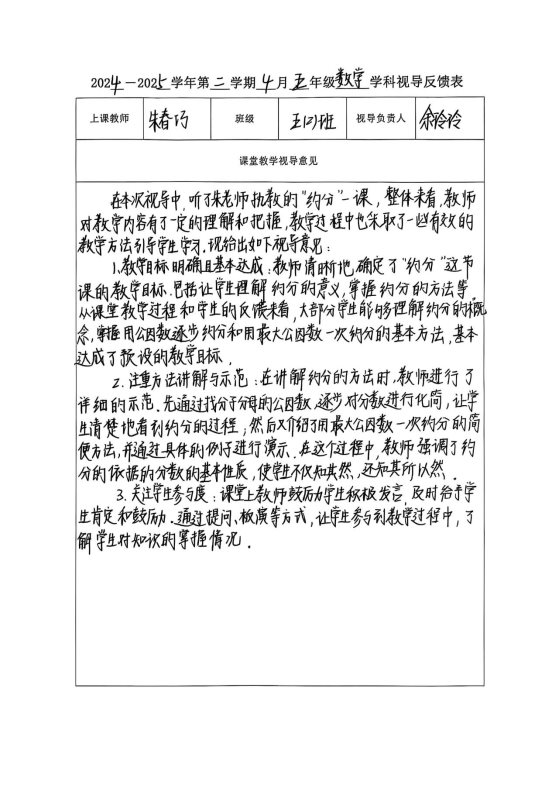 2024－2025学年第二学期4月五年级数学学科视导反馈表
上课教师 朱春巧 班级 五(2)班 视导负责人 余玲玲
课堂教学视导意见
在本次视导中,听了朱老师执教的“约分”一课,整体来看,教师
对教学内容有了一定的理解和把握,教学过程中也采取了一些有效的
教学方法引导学生学习.现给出如下视导意见:
1.教学目标明确且基本达成:教师清晰地确定了“约分”这节
课的教学目标.包括让学生理解约分的意义,掌握约分的方法等.
从课堂教学过程和学生的反馈来看,大部分学生能够理解约分的概
念,掌握用公因数逐步约分和用最大公因数一次约分的基本方法,基本
达成了预设的教学目标.
2.注重方法讲解与示范:在讲解约分的方法时,教师进行了
详细的示范.先通过找分子分母的公因数,逐步对分数进行化简,让学
生清楚地看到约分的过程;然后又介绍了用最大公因数一次约分的简
便方法,并通过具体的例子进行演示.在这个过程中,教师强调了约
分的依据的分数的基本性质,使学生不仅知其然,还知其所以然.
3.关注学生参与度:课堂上教师鼓励学生积极发言.及时给予学
生肯定和鼓励.通过提问、板演等方式,让学生参与到教学过程中,了
解学生对知识的掌握情况.